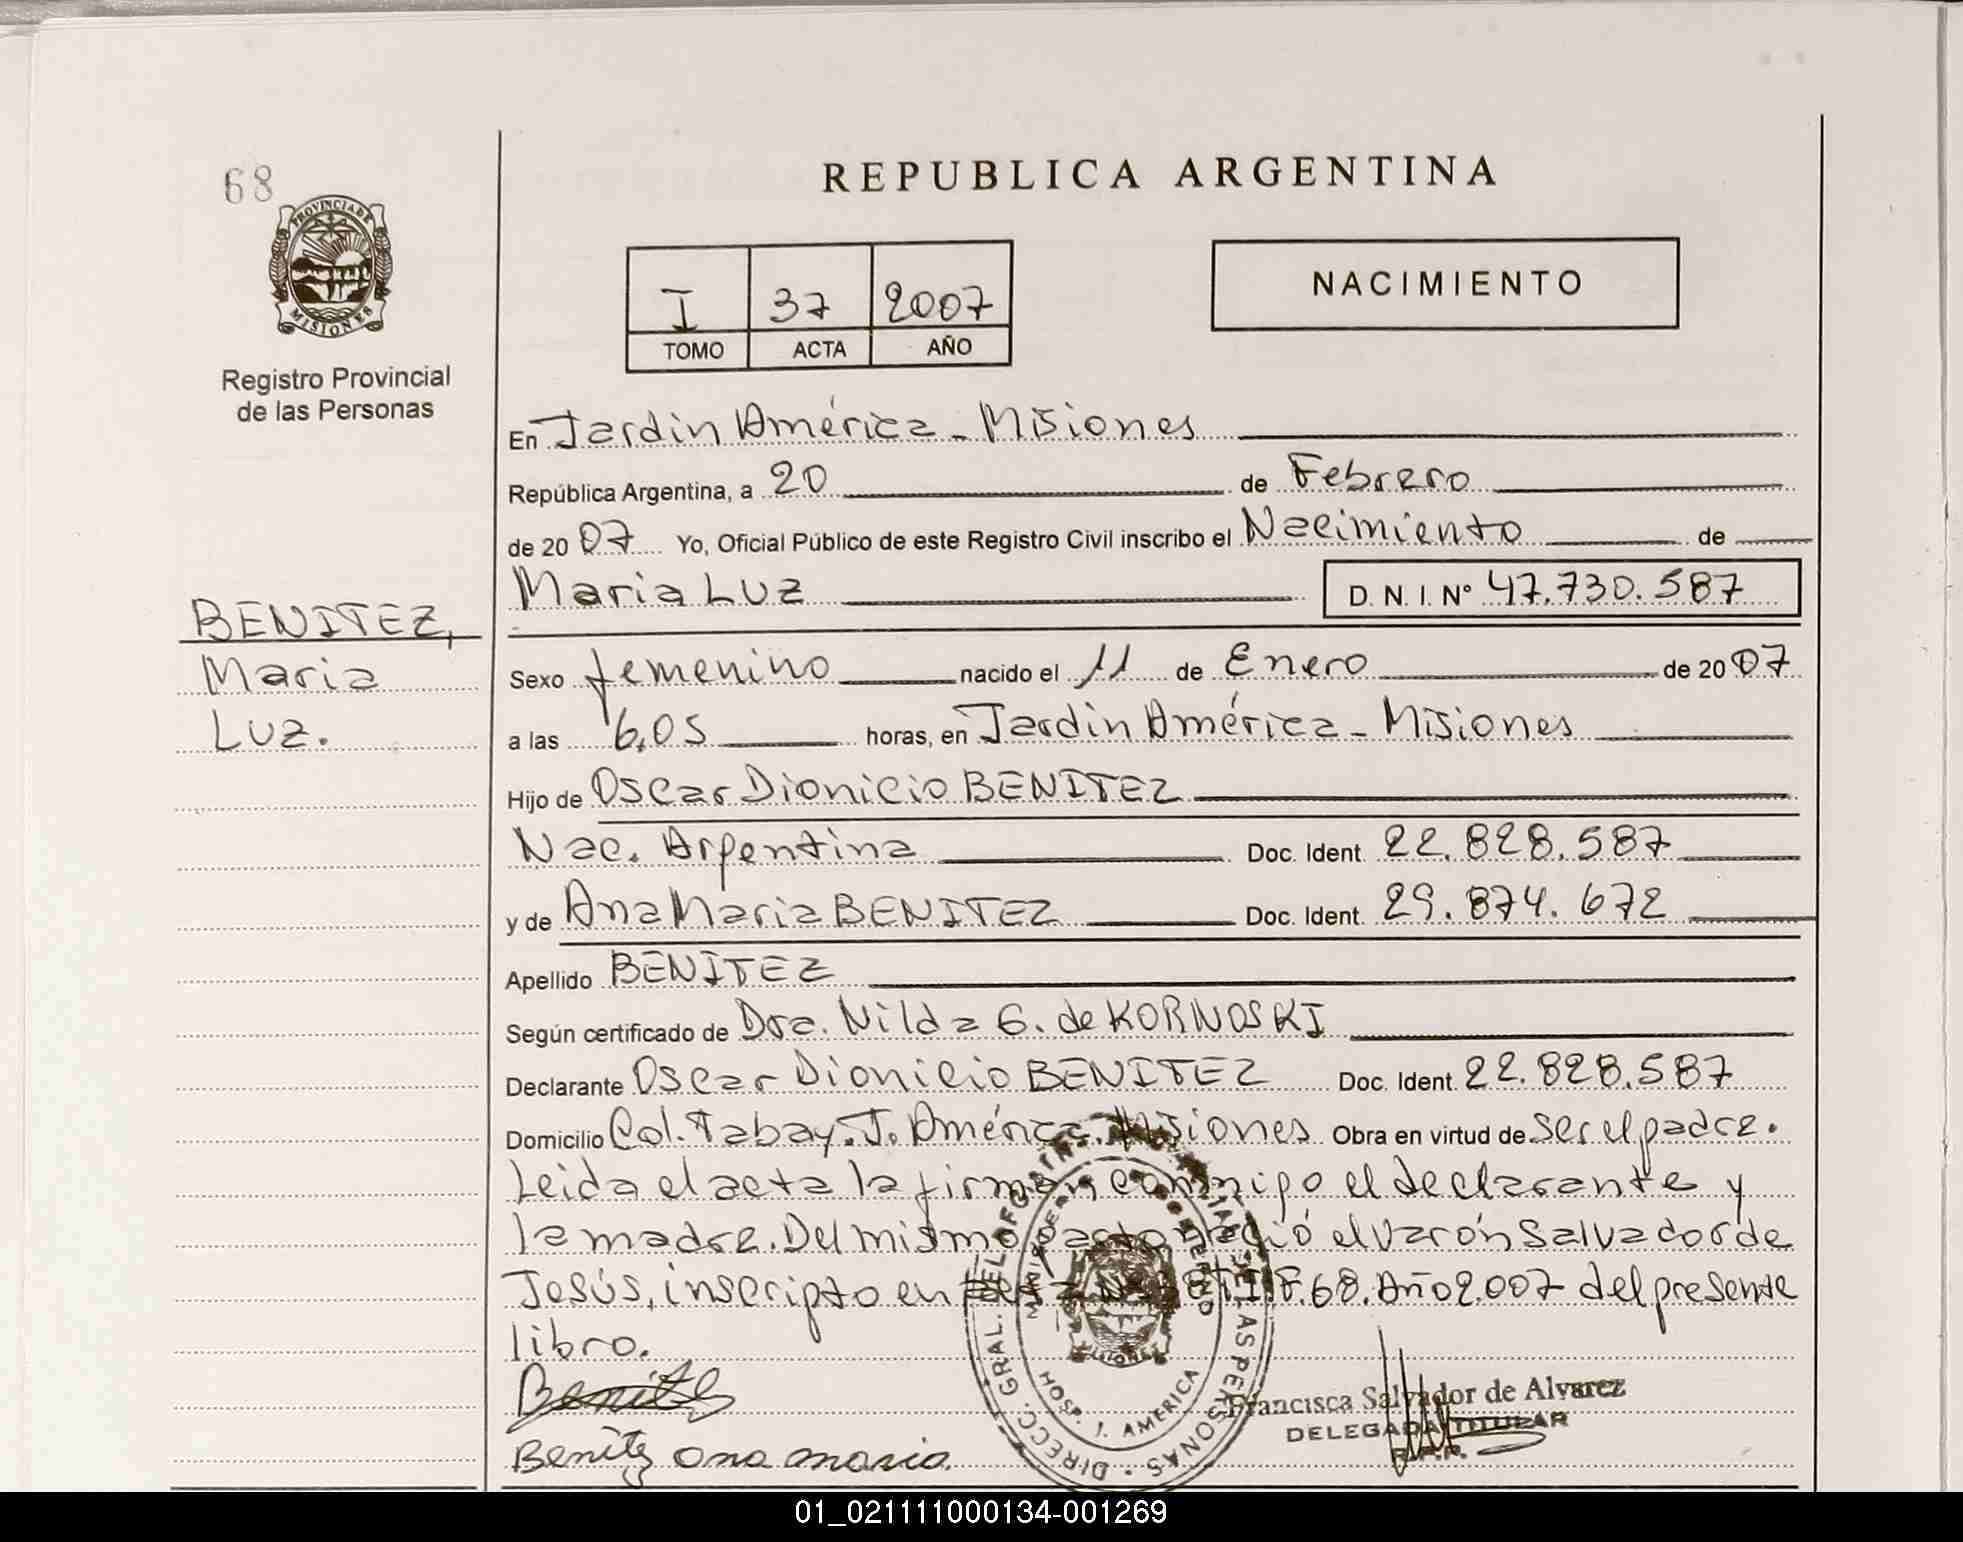 68
REPUBLICA ARGENTINA
PROVINCIA DE
MISIONES
Registro Provincial
de las Personas
I 37 2007
TOMO ACTA AÑO
NACIMIENTO
En Jardin América - Misiones
República Argentina, a 20 de Febrero
de 20 07 Yo, Oficial Público de este Registro Civil inscribo el Nacimiento de
Maria Luz D. N. I. Nº 47.730.587
BENITEZ,
Maria
Luz.
Sexo femenino nacido el 11 de Enero de 20 07
a las 6,05 horas, en Jardin América - Misiones
Hijo de Oscar Dionicio BENITEZ
Nac. Argentina Doc. Ident. 22.828.587
y de Ana Maria BENITEZ Doc. Ident. 29.874.672
Apellido BENITEZ
Según certificado de Dra. Nilda G. de KORNOSKI
Declarante Oscar Dionicio BENITEZ Doc. Ident. 22.828.587
Domicilio Col. Tabay. J. América. Misiones Obra en virtud de ser el padre.
Leida el acta la firman conmigo el declarante y
la madre. Del mismo parto nació el varón Salvador de
Jesús, inscripto en T.I.F.68. Año 2.007 del presente
libro.
Benitez
Benitez ana maria.
DIRECC. GRAL. DEL LAS PERSONAS
HOSP. J. AMERICA
Francisca Salvador de Alvarez
DELEGADA TITULAR
R.P.P.
01_021111000134-001269